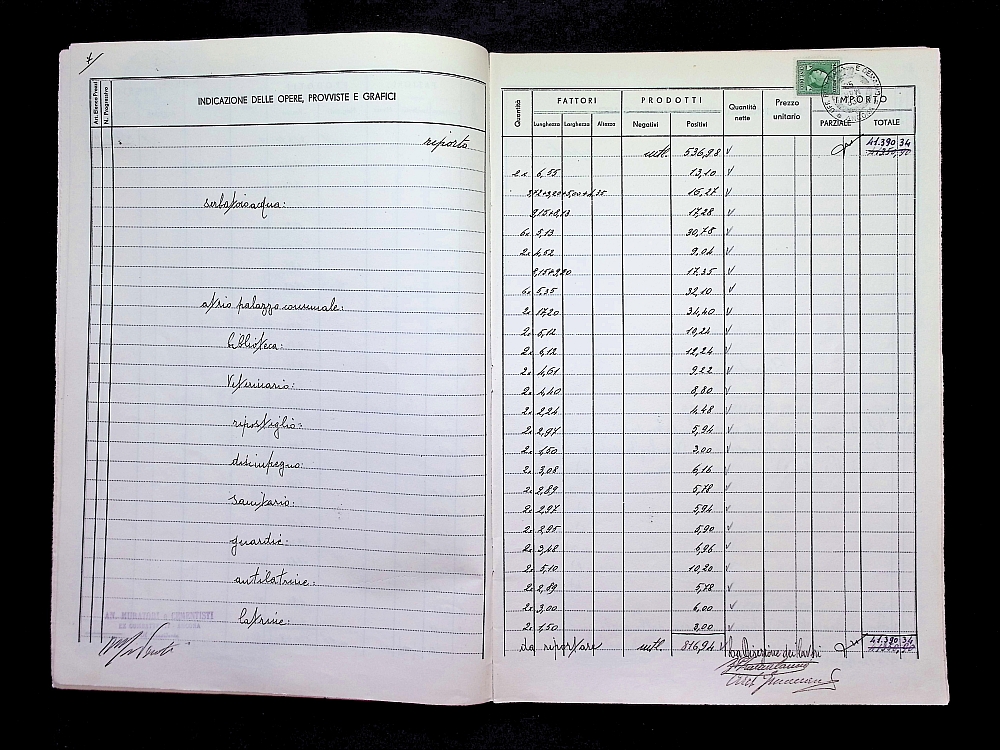 INDICAZIONE DELLE OPERE, PROVVISTE E GRAFICI
Art. Elenco Prezzi
N. Progressivo
riporto
serbatoio acqua:
atrio palazzo comunale:
biblioteca:
Veterinario:
ripostiglio:
disimpegno:
sanitario:
guardie:
antilatrine:
latrine:
Quantità
FATTORI
Lunghezza Larghezza Altezza
PRODOTTI
Negativi Positivi
Quantità nette
Prezzo unitario
IMPORTO
PARZIALE TOTALE
mtl. 536,98 V 41.390 34
2x 6,55 13,10 V
16,27 V
9,15+8,13 17,28 V
6x 5,13 30,78 V
2x 4,52 9,04 V
9,15+8,20 17,35 V
6x 5,35 32,10 V
2x 17,20 34,40 V
2x 5,12 10,24 V
2x 6,12 12,24 V
2x 4,61 9,22 V
2x 4,40 8,80 V
2x 2,24 4,48 V
2x 2,97 5,94 V
2x 1,50 3,00 V
2x 3,08 6,16 V
2x 2,89 5,78 V
2x 2,97 5,94 V
2x 2,95 5,90 V
2x 3,48 6,96 V
2x 5,10 10,20 V
2x 2,89 5,78 V
2x 3,00 6,00 V
2x 1,50 3,00 V
da riportare mtl. 816,94 V 41.390 34
La Direzione dei lavori